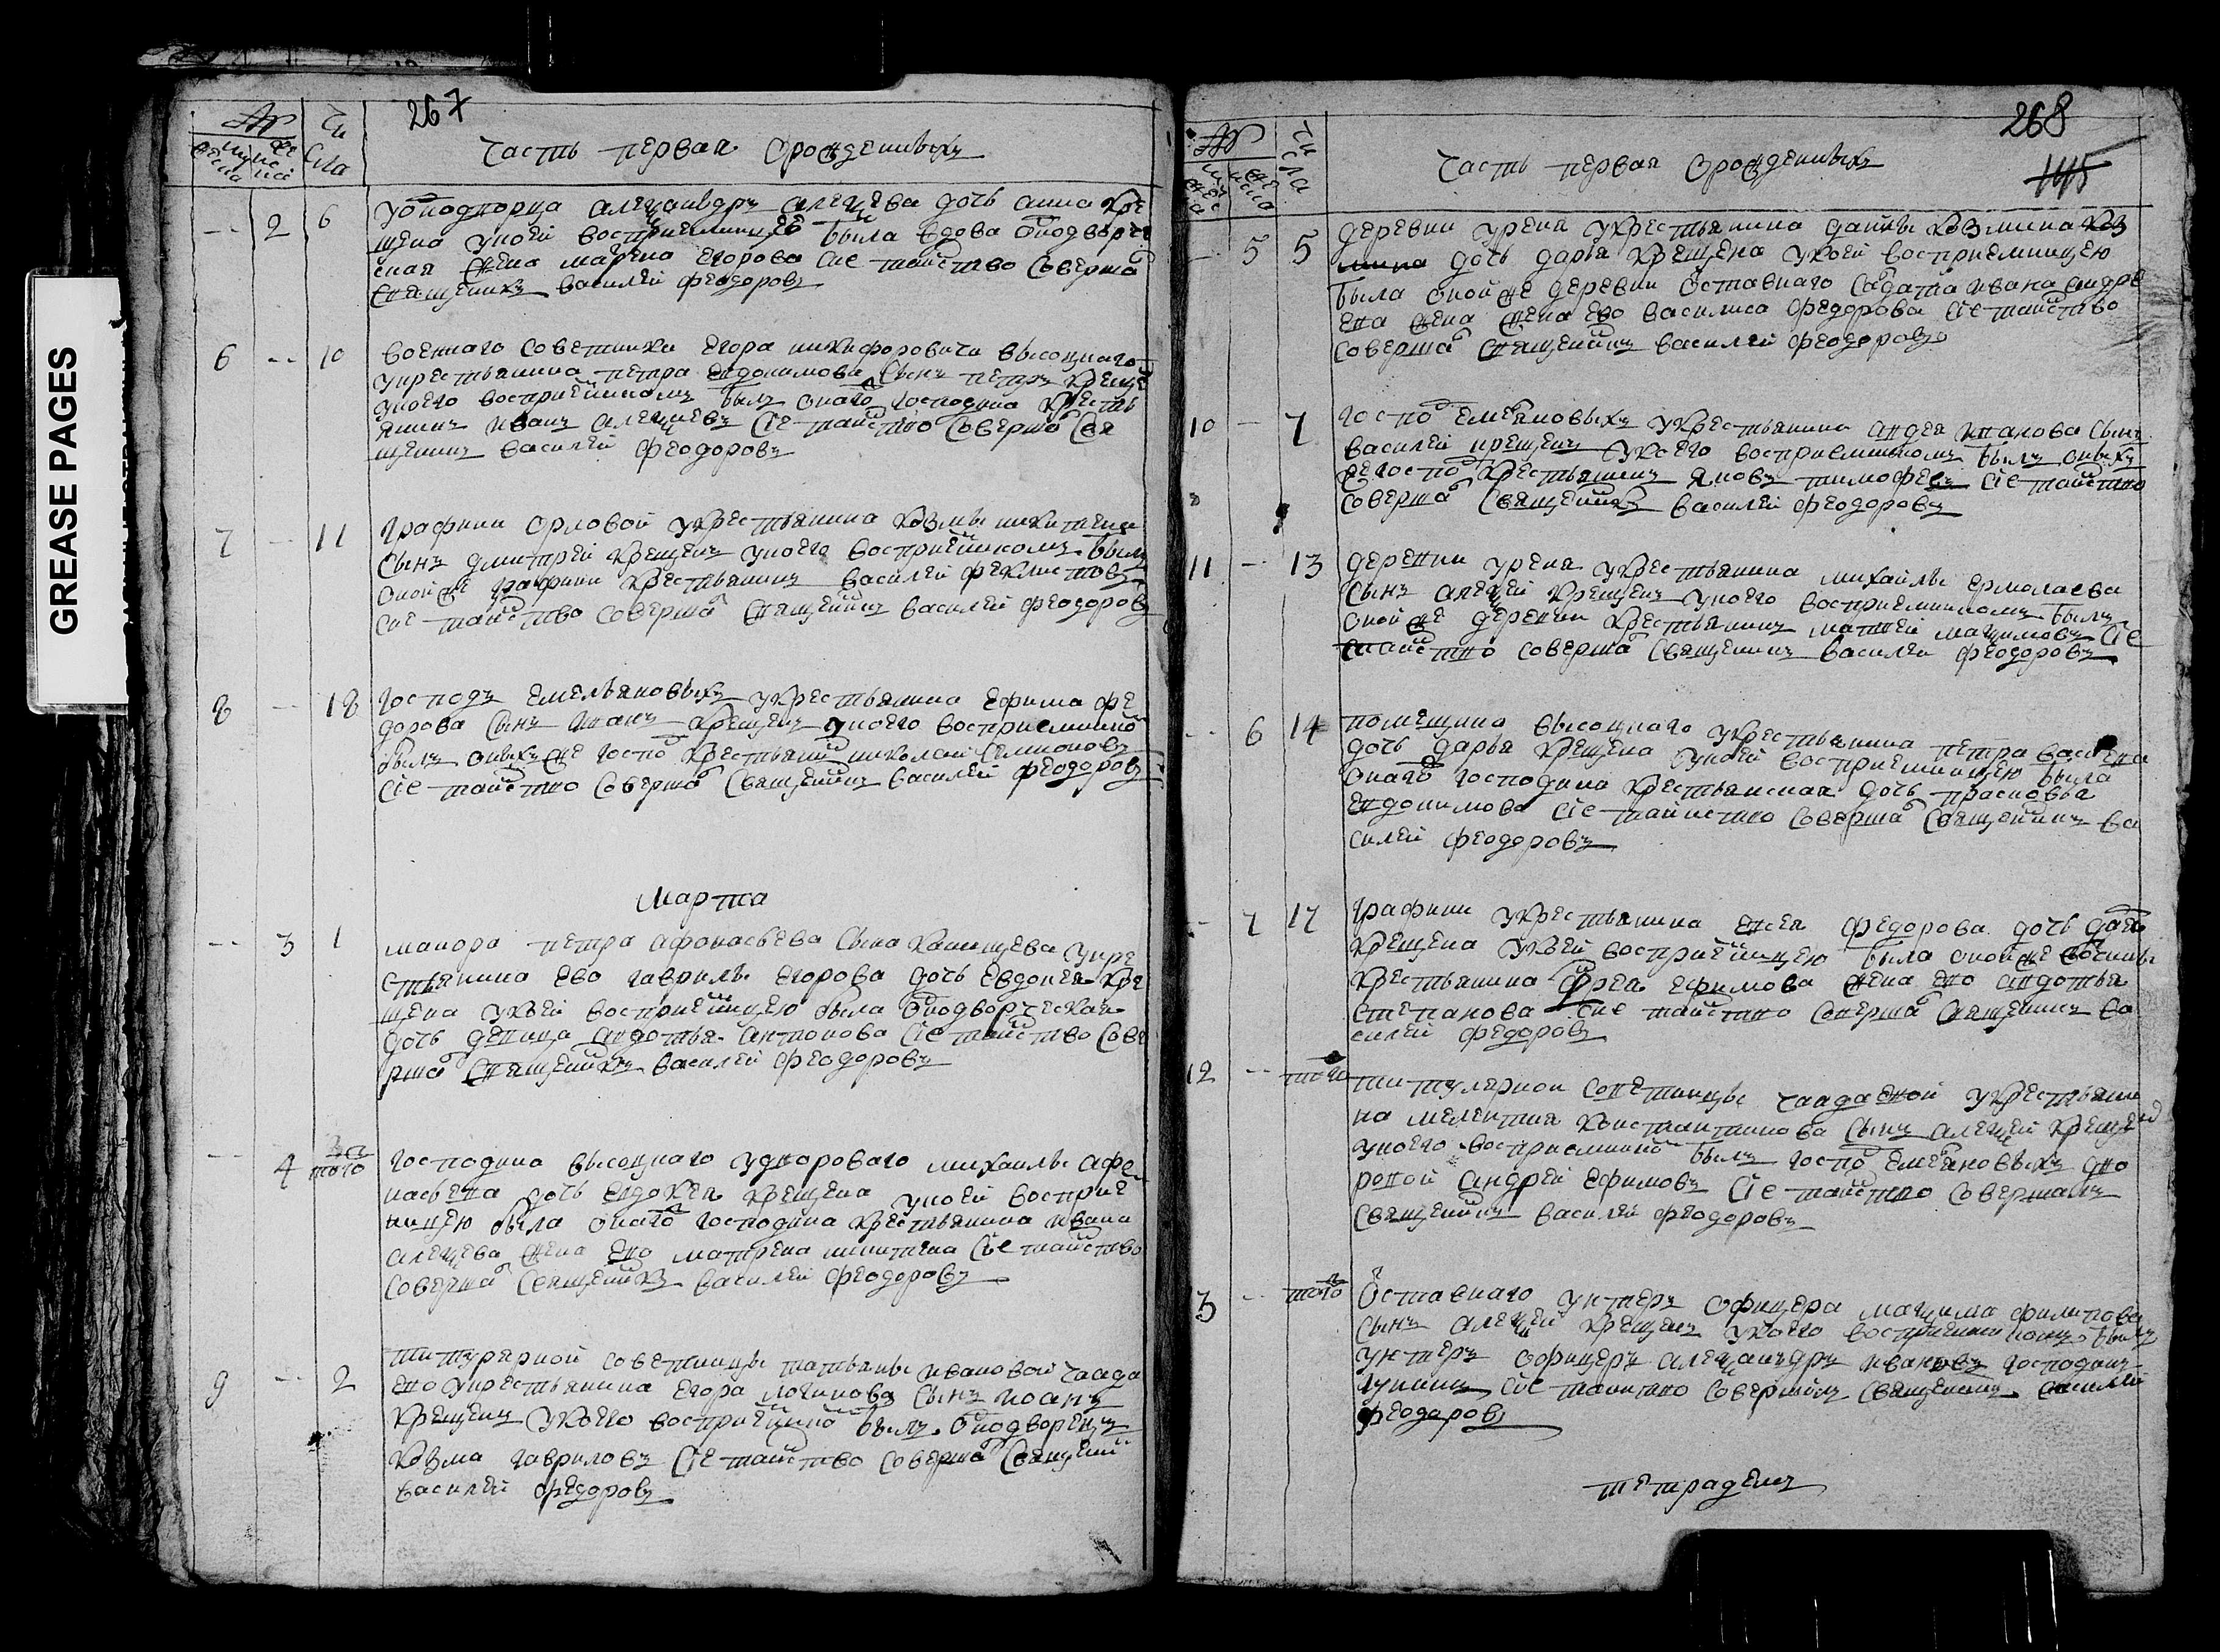 GREASE PAGES
267
№
Чи
сла
мужеска
женска
часть первая орожденныхъ
-- 2 6
уоноднорца алеѯандръ алеѯева дочь анна кре
щена укоей восприемницею была вдова однодворче
ская жена марѳа егорова сие таинство соверша
священникъ василей феодоровъ
6 -- 10
военнаго советника егора никифоровича высоцкаго
укрестьянина петра евдокимова сынъ петръ креще
укоего восприемникомъ былъ онаго господина кресть
янинъ иванъ алеѯиевъ сие таинство соверша свя
щенникъ василей феодоровъ
7 -- 11
графини орловой укрестьянина козмы никитина
сынъ дмитрей крещенъ укоего восприемникомъ былъ
оной же графини крестьянинъ василей феклистовъ
сие таинство соверша священникъ василей феодоровъ
8 -- 18
господъ емельяновыхъ укрестьянина ефима фе
дорова сынъ иванъ крещенъ укоего восприемнико
былъ оныхъ же госпо крестьяни николай симионовъ
сие таинство соверша священникъ василей феодоровъ
Марта
-- 3 1
маиора петра афонасьева сына канищева укре
стьянина ево гаврилы егорова дочь евдокея кре
щена укоей восприемницею была однодворческая
дочь девица авдотья антонова сие таинство сове
рша священникъ василей феодоровъ
-- 4 того
господина высоцкаго удвороваго михаилы афо
насьева дочь евдокея крещена укоей восприе
ницею была онаго господина крестьянина ивана
алеѯева жена ево матрена никитина сие таинство
соверша священникъ василей феодоровъ
9 -- 2
титулярной советницы татьяны ивановой чаада
ево укрестьянина егора логинова сынъ иоанъ
крещенъ укоего восприемнико былъ однодворецъ
козма гавриловъ сие таинство соверша священни
василей федоровъ
268
145
№
Чи
сла
часть первая орожденныхъ
-- 5 5
деревни урена укрестьянина данилы козмина коз
мина дочь дарья крещена укоей восприемницею
была оной же деревни отставнаго салдата ивана андре
ева жена жена ево василиса федорова сие таинство
соверша священникъ василей феодоровъ
10 -- 7
госпо емельяновыхъ укрестьянина андрея иванова сынъ
василей крещенъ укоего восприемникомъ былъ оныхъ
же госпо крестьянинъ яковъ тимофеевъ сие таинство
соверша священникъ василей феодоровъ
11 -- 13
деревни урена укрестьянина михайлы ермолаева
сынъ алеѯей крещенъ укоего восприемникомъ былъ
оной же деревни крестьянинъ матвей маѯимовъ сие
таинство соверша священникъ василей феодоровъ
-- 6 14
помещика высоцкаго укрестьянина петра васильева
дочь дарья крещена укоей восприемницею была
онаго господина крестьянская дочь прасковья
евдокимова сие таинство соверша священникъ ва
силей феодоровъ
-- 7 17
графини укрестьянина евсея федорова дочь дарья
крещена укоей восприемницею была оной же вотчины
крестьянина ефима жена ево авдотья
степанова сие таинство соверша священникъ ва
силей федоровъ
12 -- того
титулярной советницы чаадаевой укрестьяни
на мелентия константинова сынъ алеѯей крещенъ
укоего восприемнико былъ госпо емельяновыхъ дво
ровой андрей ефимовъ сие таинство совершалъ
священникъ василей феодоровъ
3 -- того
отставнаго унтеръ офицера маѯима филипова
сынъ алеѯей крещенъ укоего восприемникомъ былъ
унтеръ офицеръ алеѯандръ ивановъ господинъ
лунинъ сие таинство совершилъ священникъ василей
феодоровъ